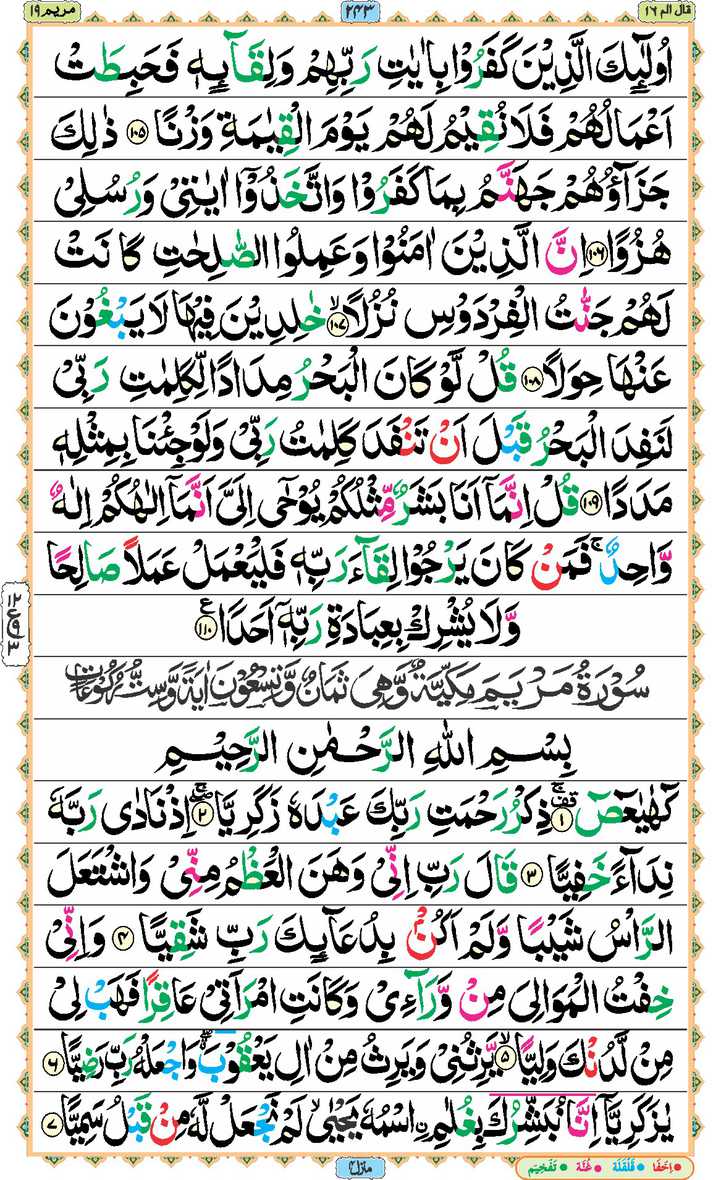 قال الم ١٦ ٢٤٣ مريم ١٩
اُولٰٓئِكَ الَّذِيْنَ كَفَرُوْا بِاٰيٰتِ رَبِّهِمْ وَلِقَآئِهٖ فَحَبِطَتْ
اَعْمَالُهُمْ فَلَا نُقِيْمُ لَهُمْ يَوْمَ الْقِيٰمَةِ وَزْنًا ١٠٥ ذٰلِكَ
جَزَآؤُهُمْ جَهَنَّمُ بِمَا كَفَرُوْا وَاتَّخَذُوْٓا اٰيٰتِيْ وَرُسُلِيْ
هُزُوًا ١٠٦ اِنَّ الَّذِيْنَ اٰمَنُوْا وَعَمِلُوا الصّٰلِحٰتِ كَانَتْ
لَهُمْ جَنّٰتُ الْفِرْدَوْسِ نُزُلًا ۙ ١٠٧ خٰلِدِيْنَ فِيْهَا لَا يَبْغُوْنَ
عَنْهَا حِوَلًا ١٠٨ قُلْ لَّوْ كَانَ الْبَحْرُ مِدَادًا لِّكَلِمٰتِ رَبِّيْ
لَنَفِدَ الْبَحْرُ قَبْلَ اَنْ تَنْفَدَ كَلِمٰتُ رَبِّيْ وَلَوْ جِئْنَا بِمِثْلِهٖ
مَدَدًا ١٠٩ قُلْ اِنَّمَآ اَنَا بَشَرٌ مِّثْلُكُمْ يُوْحٰٓى اِلَيَّ اَنَّمَآ اِلٰهُكُمْ اِلٰهٌ
وَّاحِدٌ ۚ فَمَنْ كَانَ يَرْجُوْا لِقَآءَ رَبِّهٖ فَلْيَعْمَلْ عَمَلًا صَالِحًا
وَّلَا يُشْرِكْ بِعِبَادَةِ رَبِّهٖٓ اَحَدًا ١١٠ ع
١٢
ع
٣
سُوْرَةُ مَرْيَمَ مَكِّيَّةٌ وَّهِيَ ثَمَانٌ وَّتِسْعُوْنَ اٰيَةً وَّسِتُّ رُكُوْعَاتٍ
بِسْمِ اللّٰهِ الرَّحْمٰنِ الرَّحِيْمِ
كٓهٰيٰعٓصٓ ١ ذِكْرُ رَحْمَتِ رَبِّكَ عَبْدَهٗ زَكَرِيَّا ٢ اِذْ نَادٰى رَبَّهٗ
نِدَآءً خَفِيًّا ٣ قَالَ رَبِّ اِنِّيْ وَهَنَ الْعَظْمُ مِنِّيْ وَاشْتَعَلَ
الرَّاْسُ شَيْبًا وَّلَمْ اَكُنْۢ بِدُعَآئِكَ رَبِّ شَقِيًّا ٤ وَاِنِّيْ
خِفْتُ الْمَوَالِيَ مِنْ وَّرَآءِيْ وَكَانَتِ امْرَاَتِيْ عَاقِرًا فَهَبْ لِيْ
مِنْ لَّدُنْكَ وَلِيًّا ۙ ٥ يَّرِثُنِيْ وَيَرِثُ مِنْ اٰلِ يَعْقُوْبَ ۖ وَاجْعَلْهُ رَبِّ رَضِيًّا ٦
يٰزَكَرِيَّآ اِنَّا نُبَشِّرُكَ بِغُلٰمِ ۨ اسْمُهٗ يَحْيٰى ۙ لَمْ نَجْعَلْ لَّهٗ مِنْ قَبْلُ سَمِيًّا ٧
منزل ٤
اِخْفَا قَلْقَلَه غُنَّه تَفْخِيْم